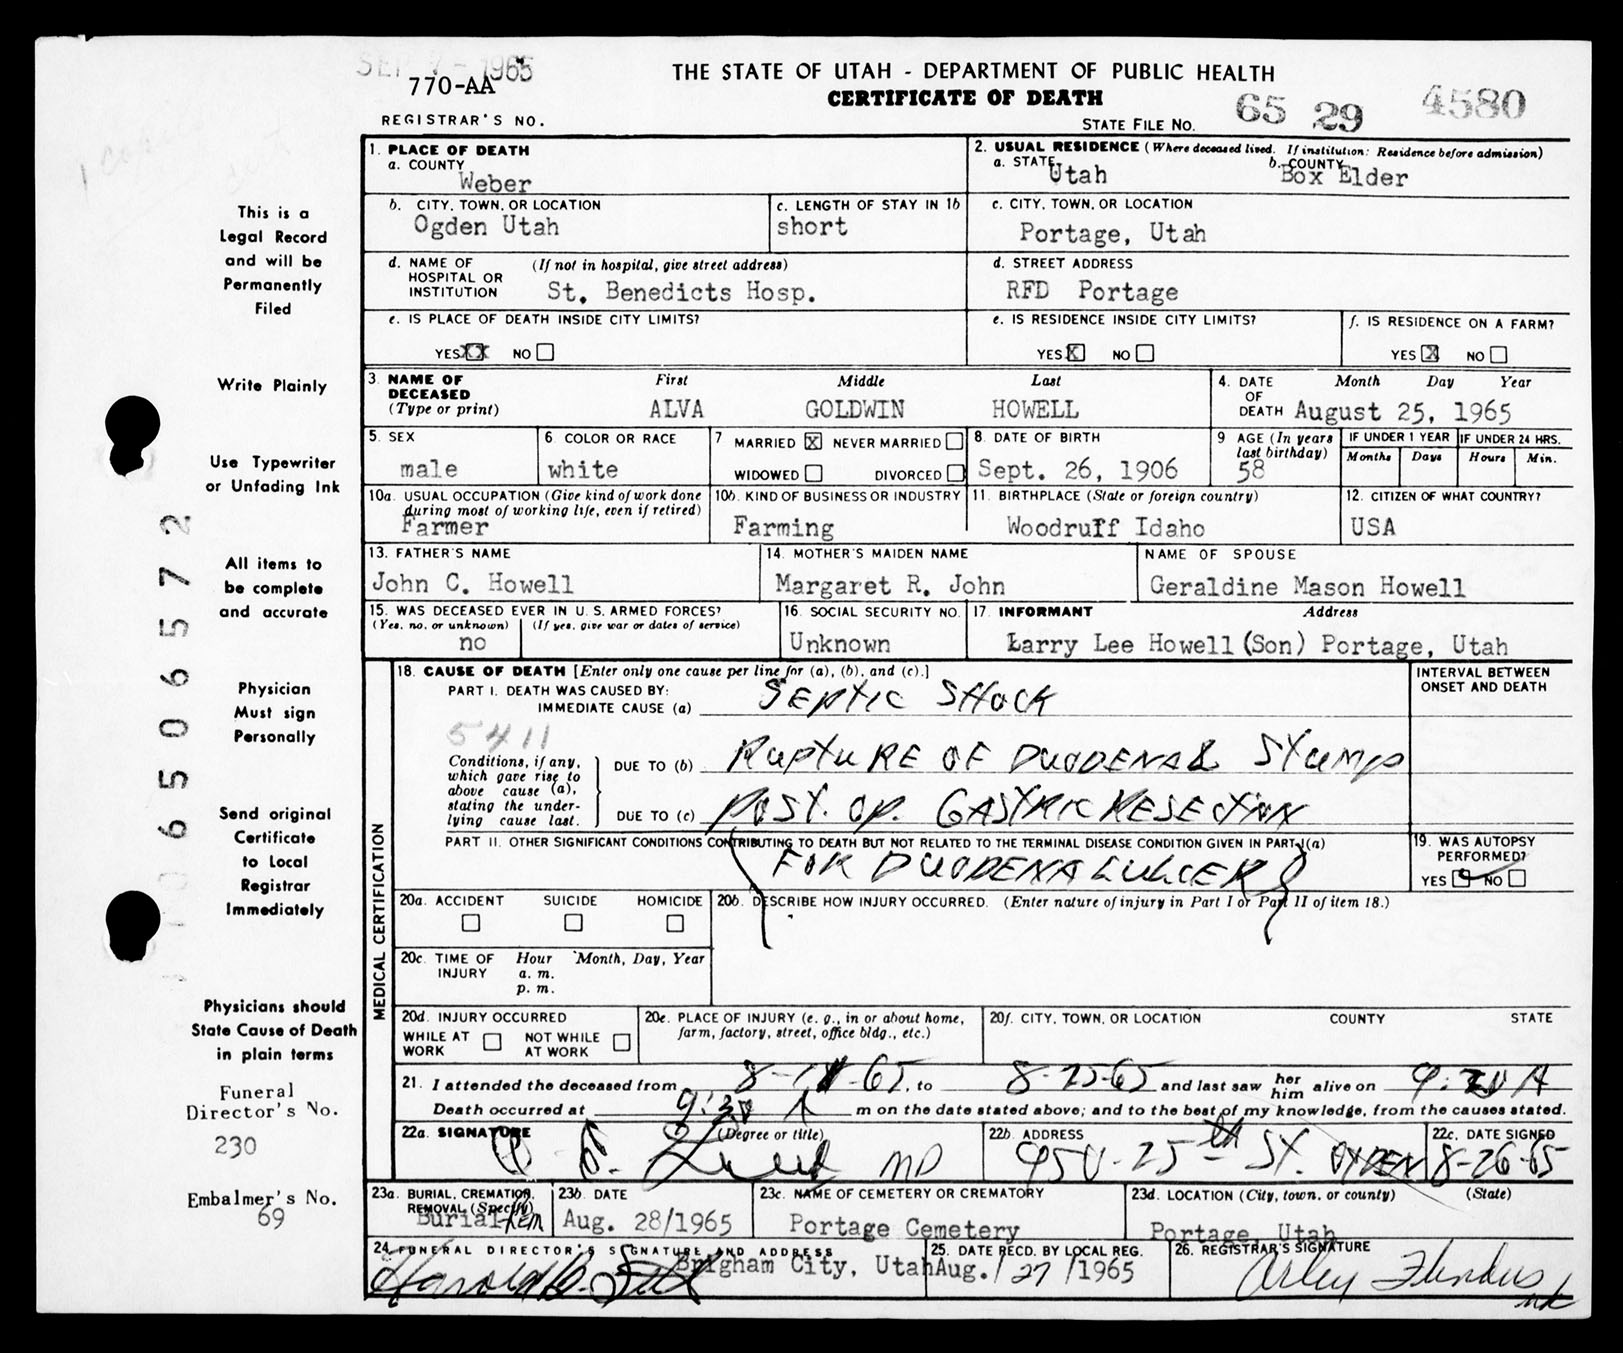 SEP 7 - 1965
770-AA
REGISTRAR'S NO.
THE STATE OF UTAH - DEPARTMENT OF PUBLIC HEALTH
CERTIFICATE OF DEATH
STATE FILE NO. 65 29 4580
This is a
Legal Record
and will be
Permanently
Filed
Write Plainly
Use Typewriter
or Unfading Ink
All items to
be complete
and accurate
Physician
Must sign
Personally
Send original
Certificate
to Local
Registrar
Immediately
Physicians should
State Cause of Death
in plain terms
Funeral
Director's No.
230
Embalmer's No.
69
06506572
1. PLACE OF DEATH
a. COUNTY
Weber
2. USUAL RESIDENCE (Where deceased lived. If institution: Residence before admission)
a. STATE Utah b. COUNTY Box Elder
b. CITY, TOWN, OR LOCATION
Ogden Utah
c. LENGTH OF STAY IN 1b
short
c. CITY, TOWN, OR LOCATION
Portage, Utah
d. NAME OF HOSPITAL OR INSTITUTION (If not in hospital, give street address)
St. Benedicts Hosp.
d. STREET ADDRESS
RFD Portage
e. IS PLACE OF DEATH INSIDE CITY LIMITS?
YES XX NO
e. IS RESIDENCE INSIDE CITY LIMITS?
YES X NO
f. IS RESIDENCE ON A FARM?
YES X NO
3. NAME OF DECEASED (Type or print)
First Middle Last
ALVA GOLDWIN HOWELL
4. DATE OF DEATH Month Day Year
August 25, 1965
5. SEX
male
6. COLOR OR RACE
white
7 MARRIED X NEVER MARRIED
WIDOWED DIVORCED
8. DATE OF BIRTH
Sept. 26, 1906
9 AGE (In years last birthday)
58
IF UNDER 1 YEAR
Months Days
IF UNDER 24 HRS.
Hours Min.
10a. USUAL OCCUPATION (Give kind of work done during most of working life, even if retired)
Farmer
10b. KIND OF BUSINESS OR INDUSTRY
Farming
11. BIRTHPLACE (State or foreign country)
Woodruff Idaho
12. CITIZEN OF WHAT COUNTRY?
USA
13. FATHER'S NAME
John C. Howell
14. MOTHER'S MAIDEN NAME
Margaret R. John
NAME OF SPOUSE
Geraldine Mason Howell
15. WAS DECEASED EVER IN U.S. ARMED FORCES?
(Yes, no, or unknown) (If yes, give war or dates of service)
no
16. SOCIAL SECURITY NO.
Unknown
17. INFORMANT Address
Larry Lee Howell (Son) Portage, Utah
MEDICAL CERTIFICATION
18. CAUSE OF DEATH [Enter only one cause per line for (a), (b), and (c).]
PART I. DEATH WAS CAUSED BY:
IMMEDIATE CAUSE (a) SEPTIC SHOCK
INTERVAL BETWEEN ONSET AND DEATH
5411
Conditions, if any, which gave rise to above cause (a), stating the underlying cause last.
DUE TO (b) RUPTURE OF DUODENAL STUMP
DUE TO (c) POST. OP. GASTRIC RESECTION
PART II. OTHER SIGNIFICANT CONDITIONS CONTRIBUTING TO DEATH BUT NOT RELATED TO THE TERMINAL DISEASE CONDITION GIVEN IN PART I(a)
FOR DUODENAL ULCER
19. WAS AUTOPSY PERFORMED?
YES NO
20a. ACCIDENT SUICIDE HOMICIDE
20b. DESCRIBE HOW INJURY OCCURRED. (Enter nature of injury in Part I or Part II of item 18.)
20c. TIME OF INJURY Hour Month, Day, Year
a. m.
p. m.
20d. INJURY OCCURRED
WHILE AT WORK NOT WHILE AT WORK
20e. PLACE OF INJURY (e. g., in or about home, farm, factory, street, office bldg., etc.)
20f. CITY, TOWN, OR LOCATION COUNTY STATE
21. I attended the deceased from 8- -65, to 8-25-65 and last saw her him alive on 9:20 A
Death occurred at 9:30 A m on the date stated above; and to the best of my knowledge, from the causes stated.
22a. SIGNATURE (Degree or title)
MD
22b. ADDRESS
950-25th ST. OGDEN
22c. DATE SIGNED
8-26-65
23a. BURIAL, CREMATION, REMOVAL (Specify)
Burial-Rem
23b. DATE
Aug. 28/1965
23c. NAME OF CEMETERY OR CREMATORY
Portage Cemetery
23d. LOCATION (City, town, or county) (State)
Portage, Utah
24. FUNERAL DIRECTOR'S SIGNATURE AND ADDRESS
Harold B. Brigham City, Utah
25. DATE RECD. BY LOCAL REG.
Aug. / 27 /1965
26. REGISTRAR'S SIGNATURE
Arley Flinders